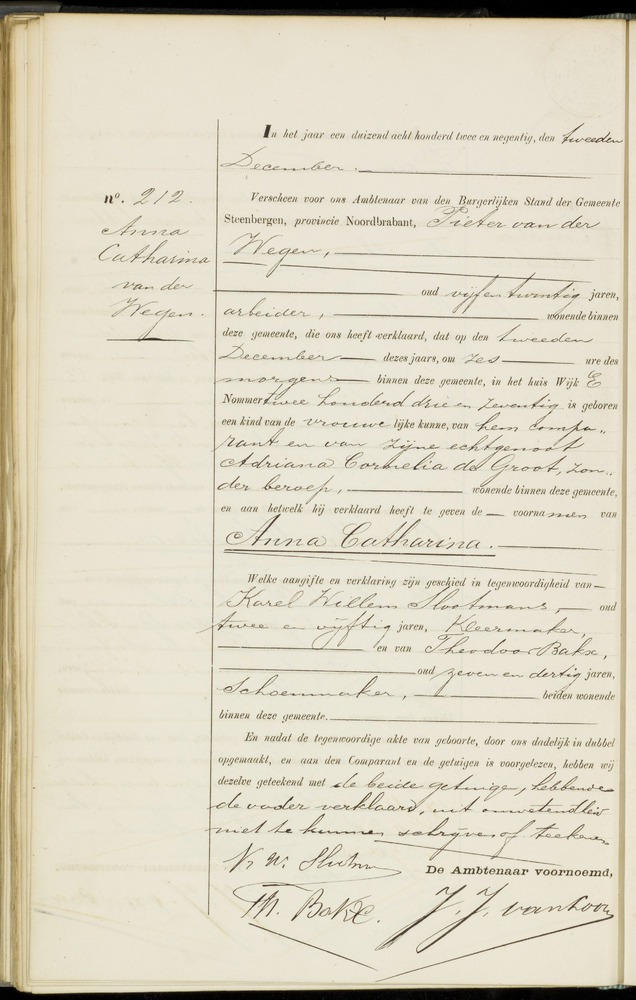 In het jaar een duizend acht honderd twee en negentig, den tweeden
December.
nº. 212.
Anna
Catharina
van der
Wegen.
Verscheen voor ons Ambtenaar van den Burgerlijken Stand der Gemeente
Steenbergen, provincie Noordbrabant, Pieter van der
Wegen,
oud vijfentwintig jaren,
arbeider, wonende binnen
deze gemeente, die ons heeft verklaard, dat op den tweeden
December dezes jaars, om zes ure des
morgens binnen deze gemeente, in het huis Wijk E
Nommer twee honderd drie en zeventig is geboren
een kind van de vrouwelijke kunne, van hem compa„
rant en van zijne echtgenoot
Adriana Cornelia de Groot, zon„
der beroep, wonende binnen deze gemeente,
en aan hetwelk hij verklaard heeft te geven de voornamen van
Anna Catharina.
Welke aangifte en verklaring zijn geschied in tegenwoordigheid van
Karel Willem Slootmans, oud
twee en vijftig jaren, Kleermaker,
en van Theodoor Bakx,
oud zeven en dertig jaren,
Schoenmaker, beiden wonende
binnen deze gemeente.
En nadat de tegenwoordige akte van geboorte, door ons dadelijk in dubbel
opgemaakt, en aan den Comparant en de getuigen is voorgelezen, hebben wij
dezelve geteekend met de beide getuigen, hebbende
de vader verklaard, uit onwetendheid
niet te kunnen schrijven of teekenen
De Ambtenaar voornoemd,
Th. Bakx.
J. J. van Loon